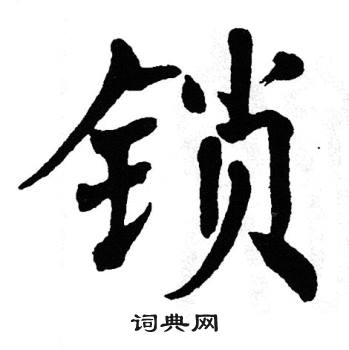 锁
词典网